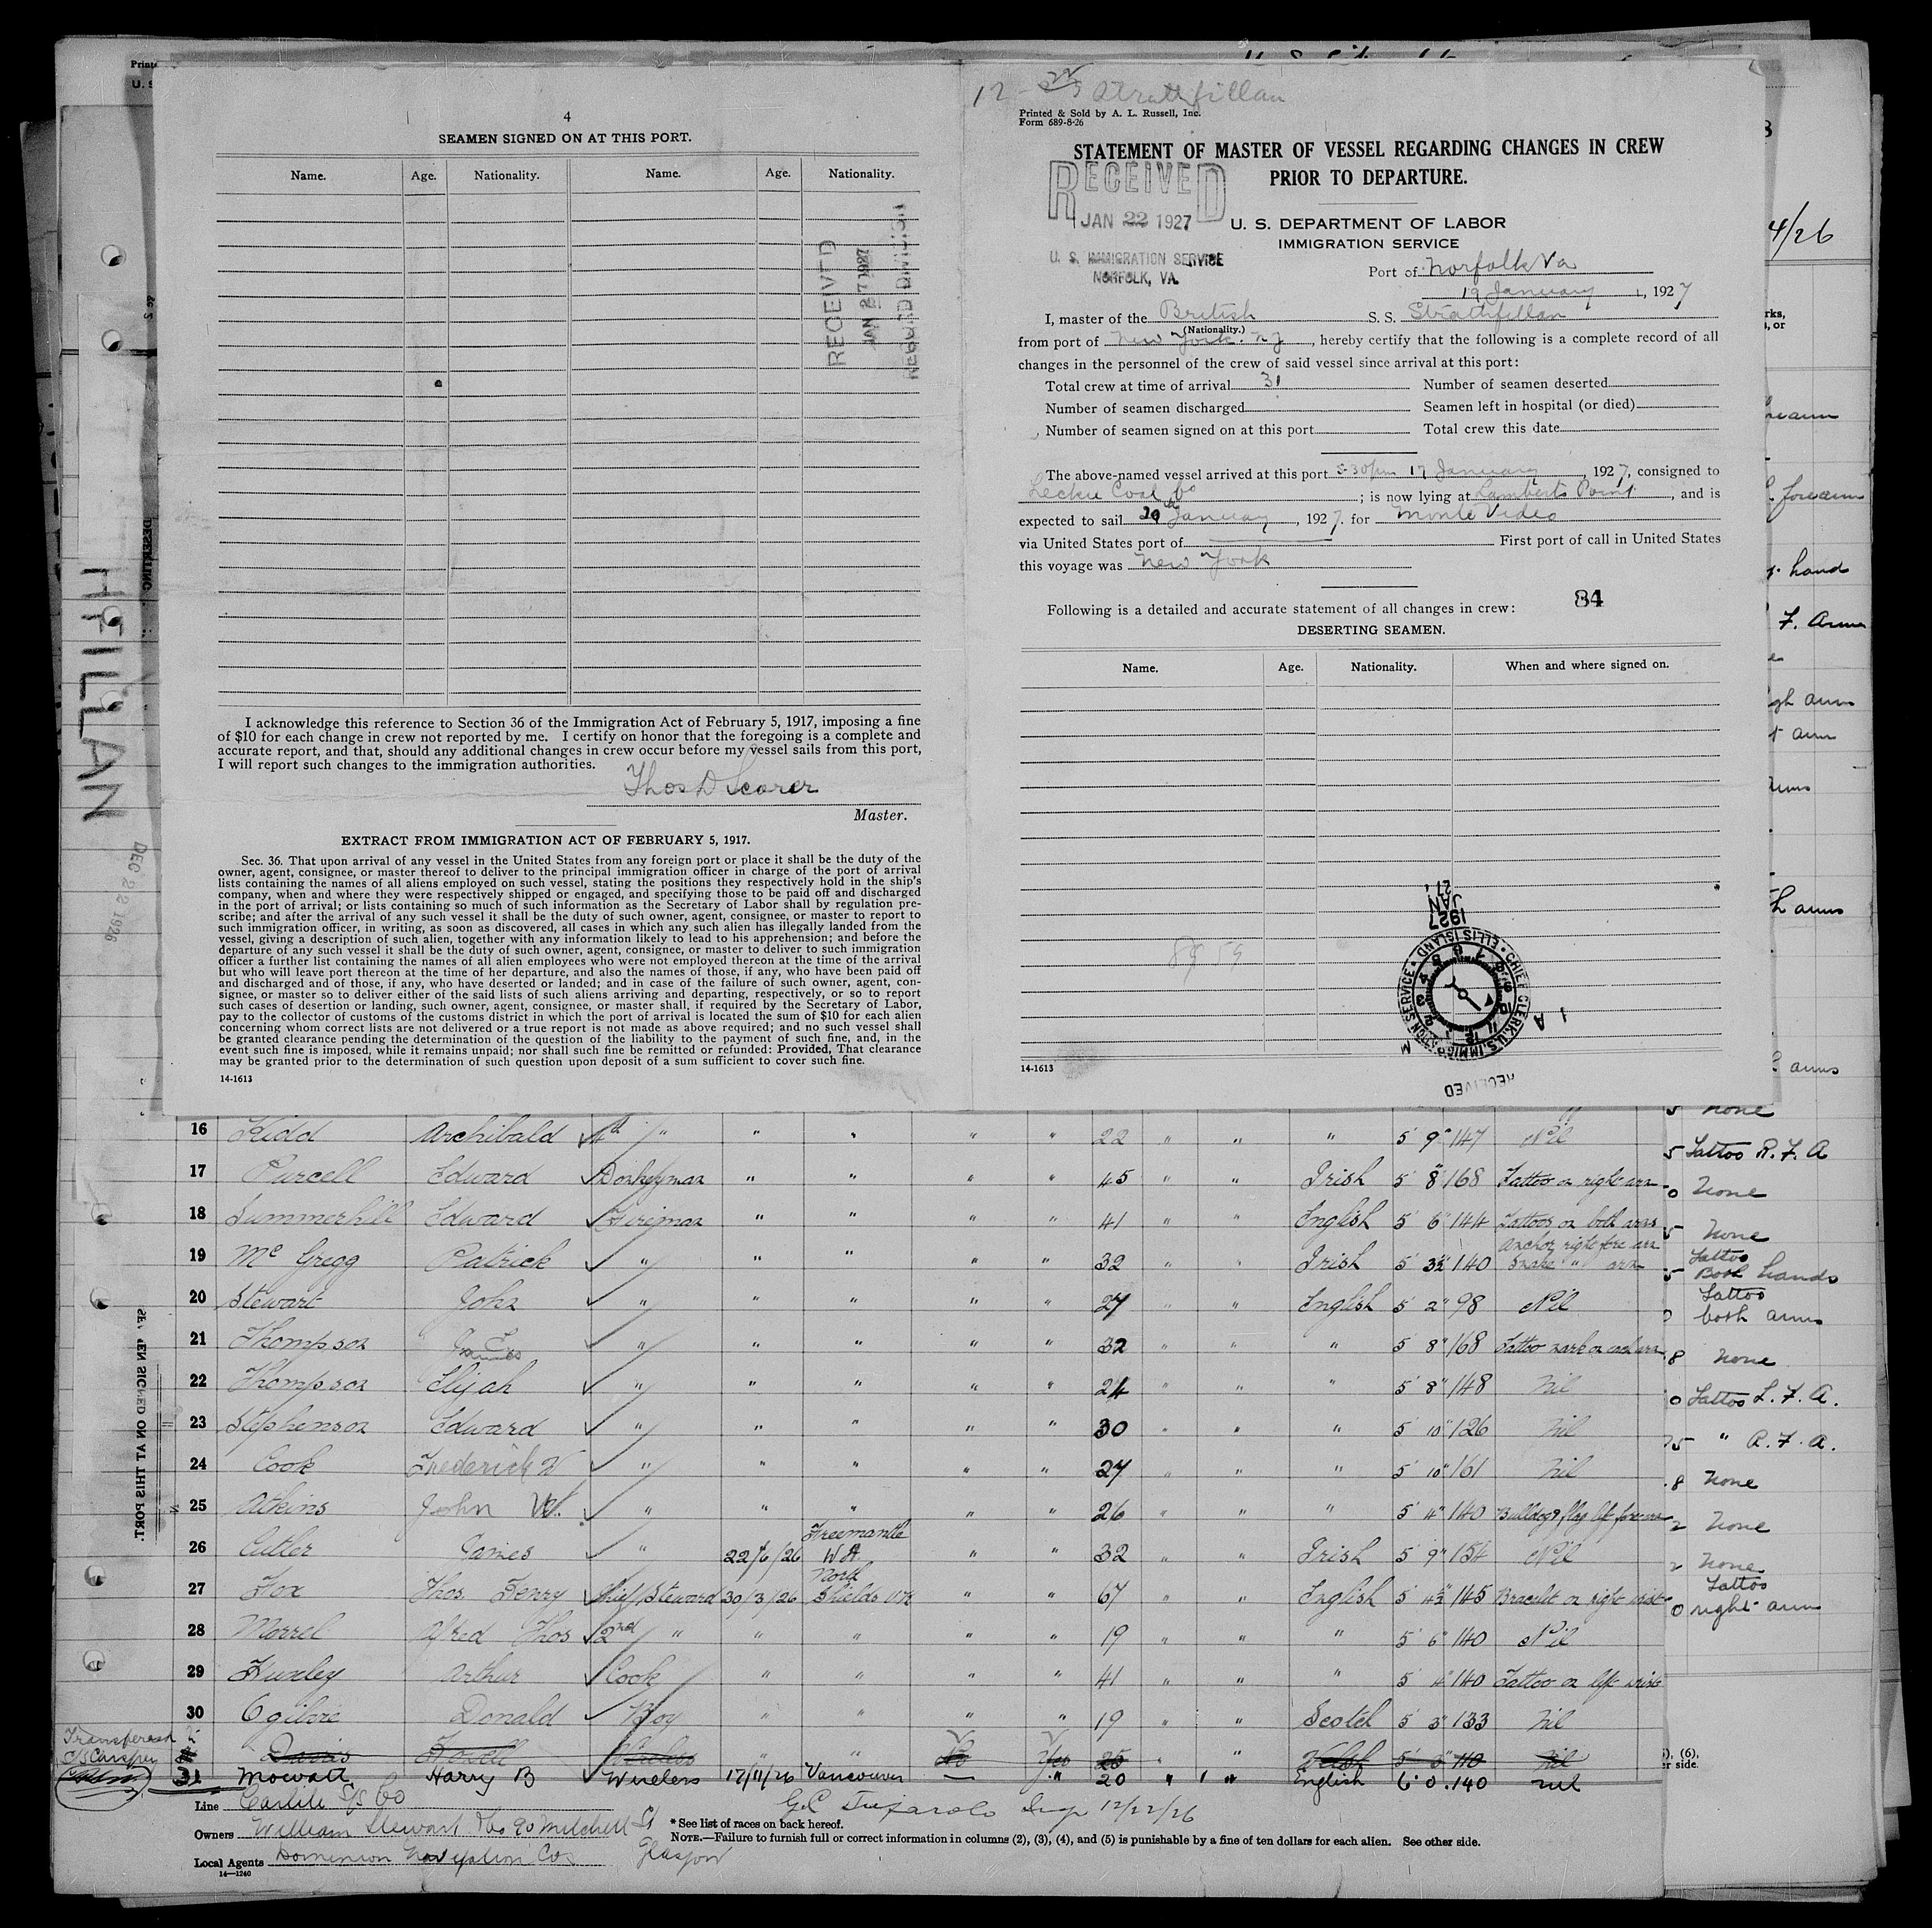 4
SEAMEN SIGNED ON AT THIS PORT.
Name. Age. Nationality. Name. Age. Nationality.
RECEIVED
JAN 27 1927
I acknowledge this reference to Section 36 of the Immigration Act of February 5, 1917, imposing a fine
of $10 for each change in crew not reported by me. I certify on honor that the foregoing is a complete and
accurate report, and that, should any additional changes in crew occur before my vessel sails from this port,
I will report such changes to the immigration authorities.
Thos D Scorer
Master.
EXTRACT FROM IMMIGRATION ACT OF FEBRUARY 5, 1917.
Sec. 36. That upon arrival of any vessel in the United States from any foreign port or place it shall be the duty of the
owner, agent, consignee, or master thereof to deliver to the principal immigration officer in charge of the port of arrival
lists containing the names of all aliens employed on such vessel, stating the positions they respectively hold in the ship's
company, when and where they were respectively shipped or engaged, and specifying those to be paid off and discharged
in the port of arrival; or lists containing so much of such information as the Secretary of Labor shall by regulation pre-
scribe; and after the arrival of any such vessel it shall be the duty of such owner, agent, consignee, or master to report to
such immigration officer, in writing, as soon as discovered, all cases in which any such alien has illegally landed from the
vessel, giving a description of such alien, together with any information likely to lead to his apprehension; and before the
departure of any such vessel it shall be the duty of such owner, agent, consignee, or master to deliver to such immigration
officer a further list containing the names of all alien employees who were not employed thereon at the time of the arrival
but who will leave port thereon at the time of her departure, and also the names of those, if any, who have been paid off
and discharged and of those, if any, who have deserted or landed; and in case of the failure of such owner, agent, con-
signee, or master so to deliver either of the said lists of such aliens arriving and departing, respectively, or so to report
such cases of desertion or landing, such owner, agent, consignee, or master shall, if required by the Secretary of Labor,
pay to the collector of customs of the customs district in which the port of arrival is located the sum of $10 for each alien
concerning whom correct lists are not delivered or a true report is not made as above required; and no such vessel shall
be granted clearance pending the determination of the question of the liability to the payment of such fine, and, in the
event such fine is imposed, while it remains unpaid; nor shall such fine be remitted or refunded: Provided, That clearance
may be granted prior to the determination of such question upon deposit of a sum sufficient to cover such fine.
14-1613
Strathfillan
Printed & Sold by A. L. Russell, Inc.
Form 689-8-26
STATEMENT OF MASTER OF VESSEL REGARDING CHANGES IN CREW
PRIOR TO DEPARTURE.
RECEIVED
JAN 22 1927
U. S. IMMIGRATION SERVICE
NORFOLK, VA.
U. S. DEPARTMENT OF LABOR
IMMIGRATION SERVICE
Port of Norfolk Va
19 January, 1927
I, master of the British S. S. Strathfillan
(Nationality.)
from port of New York. , hereby certify that the following is a complete record of all
changes in the personnel of the crew of said vessel since arrival at this port:
Total crew at time of arrival 31 Number of seamen deserted
Number of seamen discharged Seamen left in hospital (or died)
Number of seamen signed on at this port Total crew this date
The above-named vessel arrived at this port 5-30pm 17 January, 1927, consigned to
Leckie Coal Co ; is now lying at Lamberts Point, and is
expected to sail January, 1927. for Monte Video
via United States port of First port of call in United States
this voyage was New York
Following is a detailed and accurate statement of all changes in crew: 84
DESERTING SEAMEN.
Name. Age. Nationality. When and where signed on.
JAN
1927
CHIEF CLERK, U.S. IMMIGRATION SERVICE ELLIS ISLAND
RECEIVED
14-1613
HFILLAN
DEC 22 1926
4/26
16 Kidd Archibald 4th " " " " " 22 " " " 5' 9" 147 Nil
17 Purcell Edward Donkeyman " " " " 45 " " Irish 5 8" 168 Tattoo on right arm
18 Summerhill Edward Fireman " " " " 41 " " English 5' 6" 144 Tattoos on both arms
19 Mc Gregg Patrick " " " " " 32 " " Irish 5' 3½ 140 Anchor right fore arm Snake " arm
20 Stewart John " " " " " 27 " " English 5' 2" 98 Nil
21 Thompson James " " " " " 32 " " " 5' 8" 168 Tattoo mark on each arm
22 Thompson Elijah " " " " " 24 " " " 5' 8" 148 Nil
23 Stephenson Edward " " " " " 30 " " " 5' 10" 126 Nil
24 Cook Frederick W " " " " " 27 " " " 5' 10" 161 Nil
25 Atkins John W. " " " " " 26 " " " 5' 4" 140 Bulldog & flag left forearm
26 Cutler James " 22/6/26 Freemantle W A " " 32 " " Irish 5' 9" 154 Nil
27 Fox Thos. Henry Chief Steward 30/3/26 North Shields UK " " 67 " " English 5' 4½" 145 Bracelet on right wrist
28 Morrel Alfred Thos 2nd " " " " " 19 " " " 5' 6" 140 Nil
29 Huxley Arthur Cook " " " " 41 " " " 5' 4" 140 Tattoo on left wrist
30 Ogilvie Donald Boy " " " " 19 " " Scotch 5' 3" 133 Nil
Davis Howell Wireless " " No Yes 25 " " Welsh 5' 3" 110 Nil
31 Mowatt Harry B Wireless 17/11/26 Vancouver — " 20 " " English 6' 0. 140 nil
Line Carlile S/S Co
Owners William Stewart 90 Mitchell St
Glasgow
Local Agents Dominion Navigation Co
14—1240
12/22/26
* See list of races on back hereof.
NOTE.—Failure to furnish full or correct information in columns (2), (3), (4), and (5) is punishable by a fine of ten dollars for each alien. See other side.
forearm
hand
F. Arm
arms
None
Tattoo R. F. A
None
None
Tattoo Both hands
Tattoo both arms
None
Tattoo L. F. A.
" R. F. A.
None
None
None
Tattoo right arm